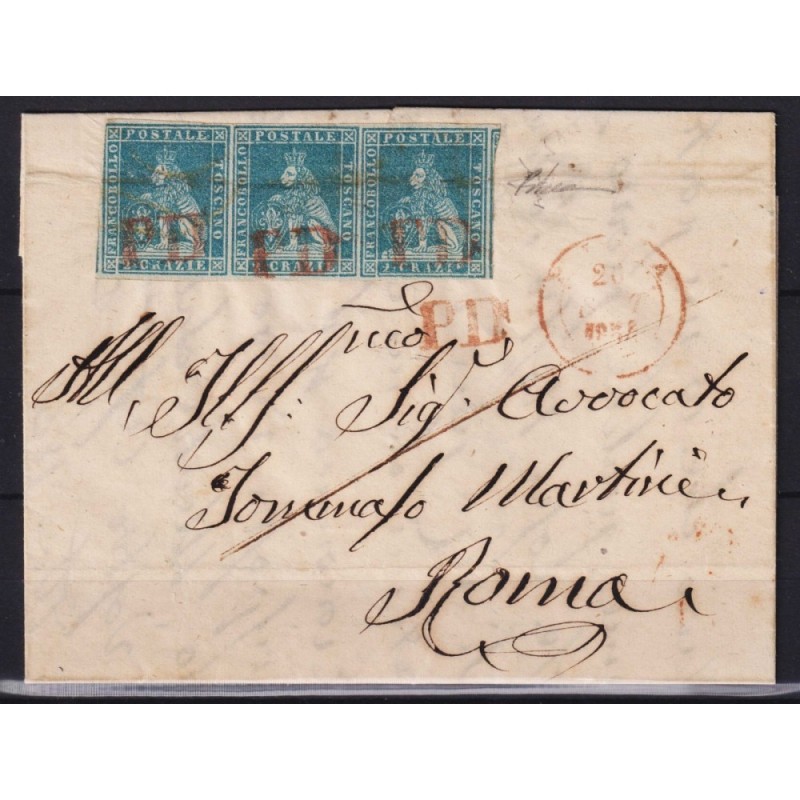 FRANCOBOLLO POSTALE TOSCANO 2 CRAZIE FRANCOBOLLO POSTALE TOSCANO 2 CRAZIE FRANCOBOLLO POSTALE TOSCANO 2 CRAZIE
PD PD PD
PD
20
All' Ill:mo Sig: Avvocato
Tommaso Martini
Roma